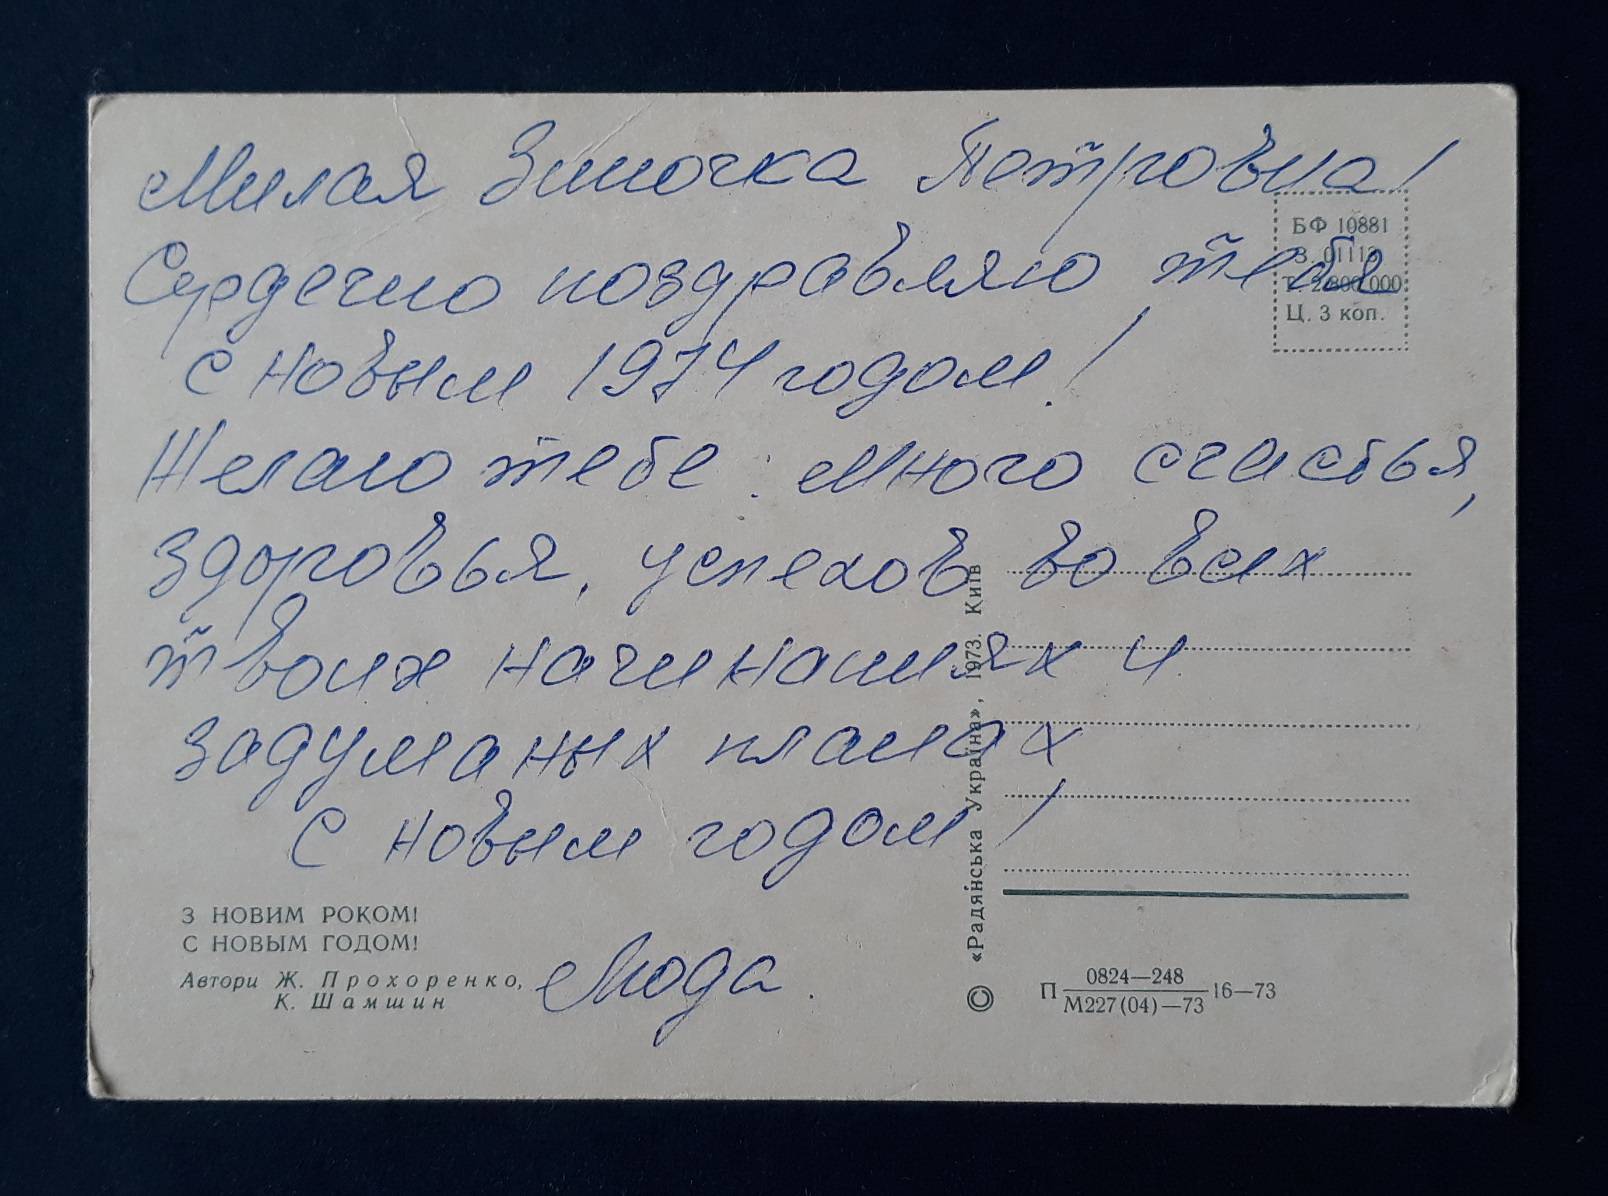 Милая Зиночка Петровна!
Сердечно поздравляю тебя
с новым 1974 годом!
Желаю тебе: много счастья,
здоровья, успехов во всех
твоих начинаниях и
задуманых планах
С новым годом!
Люда.
З НОВИМ РОКОМ!
С НОВЫМ ГОДОМ!
Автори Ж. Прохоренко,
К. Шамшин
«Радянська Україна», 1973. Київ
©
БФ 10881
З. 01113
Т. 2 800 000
Ц. 3 коп.
П 0824—248
М227(04)—73 16—73